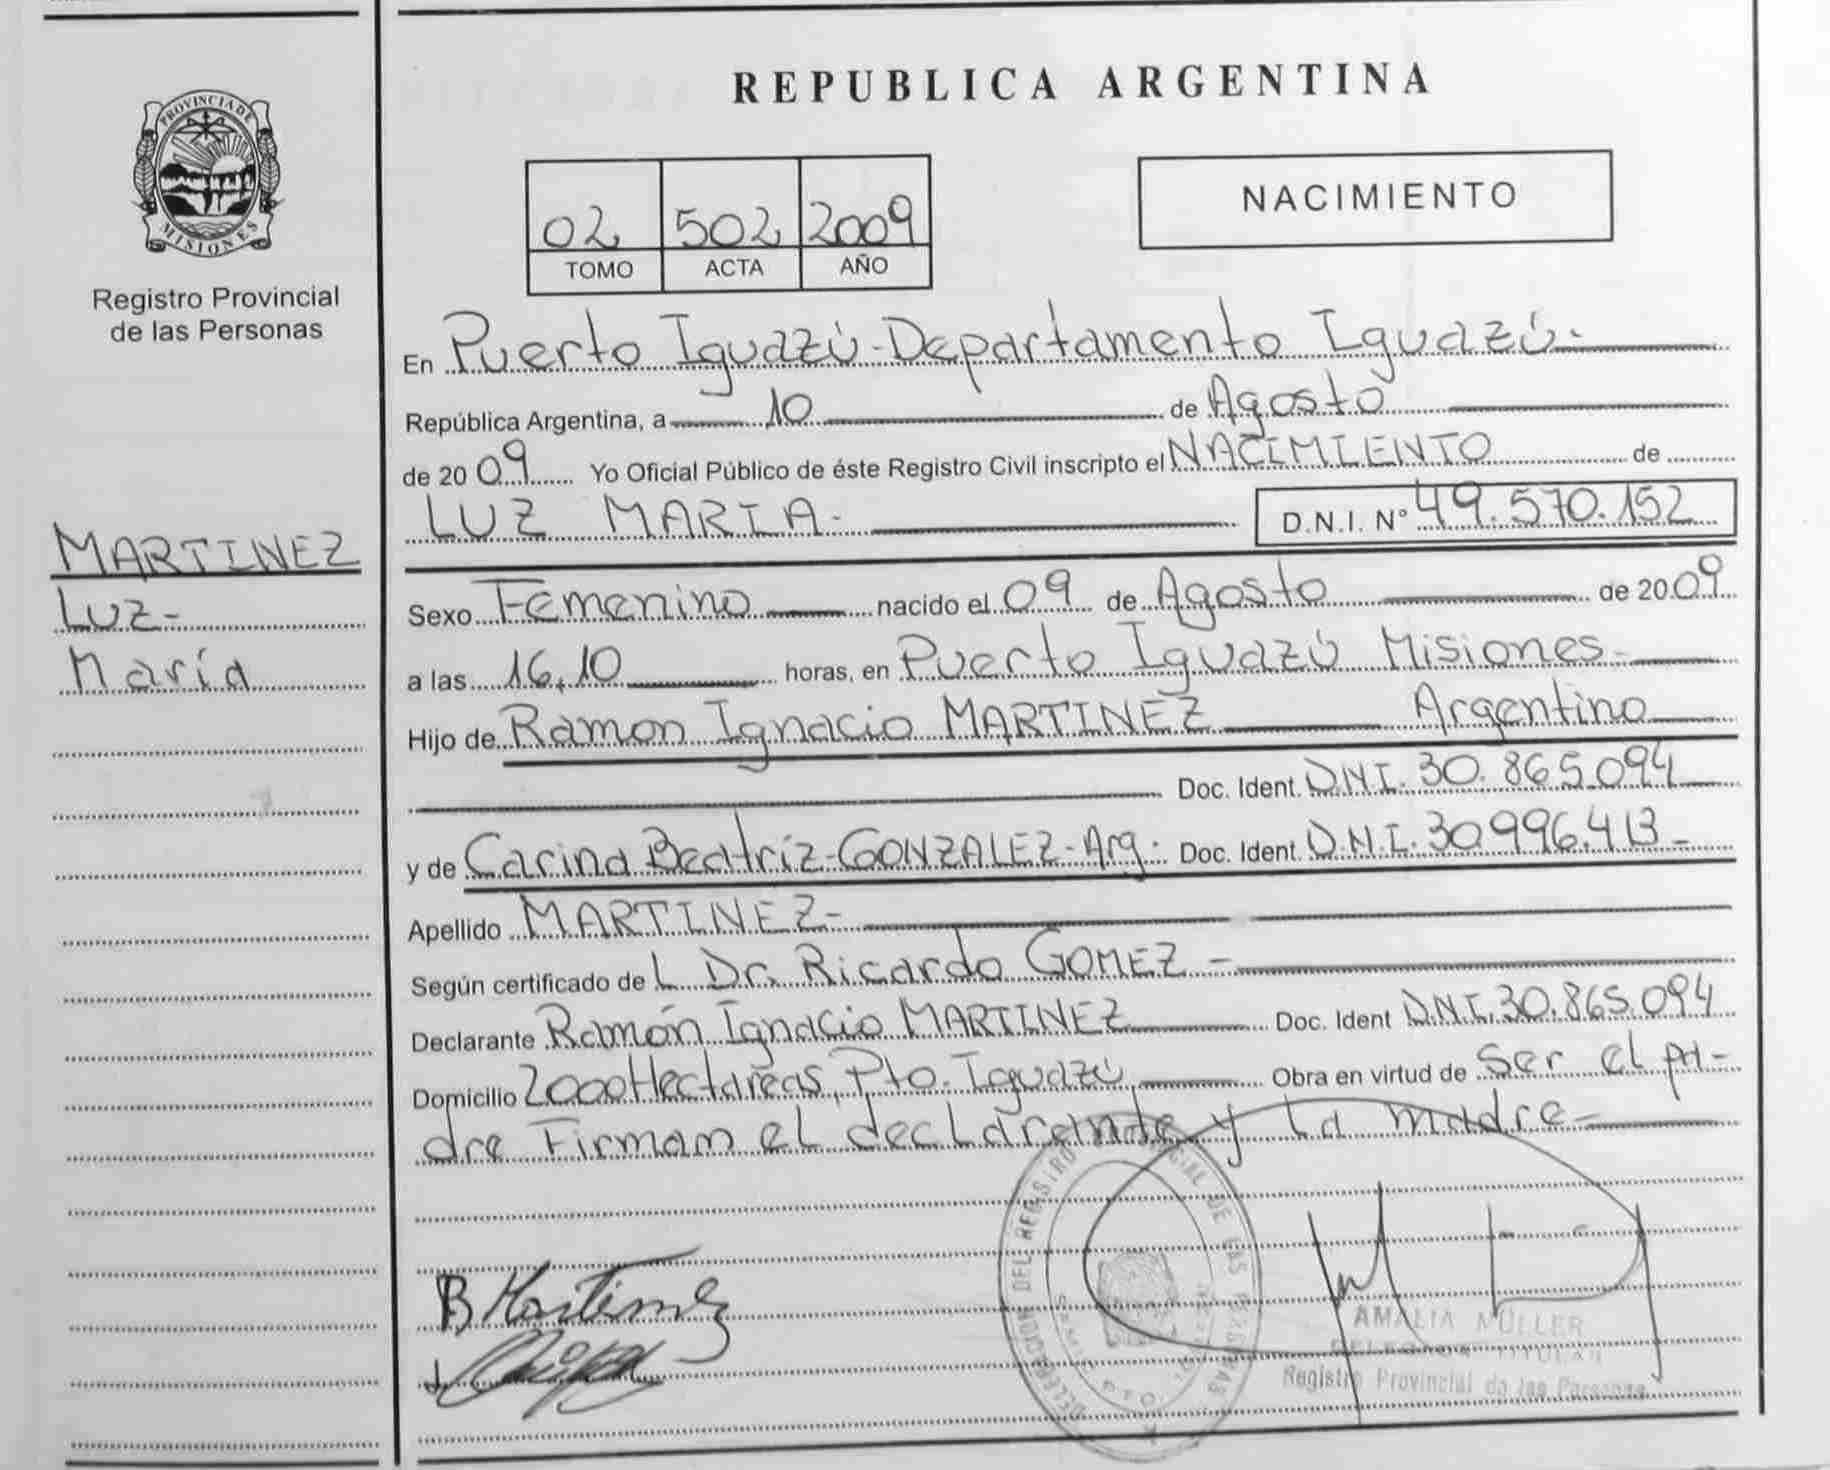 PROVINCIA DE
MISIONES
Registro Provincial
de las Personas
MARTINEZ
Luz-
María
REPUBLICA ARGENTINA
02 502 2009
TOMO ACTA AÑO
NACIMIENTO
En Puerto Iguazú-Departamento Iguazú-
República Argentina, a 10 de Agosto
de 2009 Yo Oficial Público de éste Registro Civil inscripto el NACIMIENTO de
LUZ MARIA- D.N.I. N° 49.570.152
Sexo Femenino nacido el 09 de Agosto de 2009
a las 16,10 horas, en Puerto Iguazú Misiones-
Hijo de Ramon Ignacio MARTINEZ Argentino
Doc. Ident. D.N.I. 30.865.094
y de Carina Beatriz-GONZALEZ-Arg. Doc. Ident. D.N.I. 30996.413-
Apellido MARTINEZ-
Según certificado de L Dr. Ricardo GOMEZ-
Declarante Ramón Ignacio MARTINEZ Doc. Ident D.N.I. 30.865.094
Domicilio 2000Hectareas, Pto. Iguazú Obra en virtud de Ser el pa-
dre Firman el declarante y la madre-
DELEGACION DEL REGISTRO DE LAS PERSONAS
AMALIA MÜLLER
DELEGADA TITULAR
Registro Provincial de las Personas